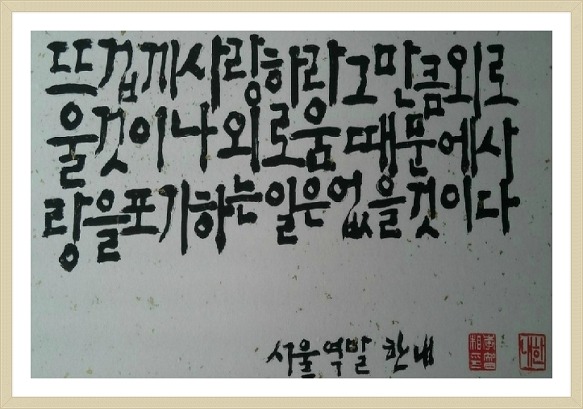 뜨겁께사랑하라그만큼외로
울것이나외로움때문에사
랑을포기하는일은없을것이다
서울역발 한내
한내